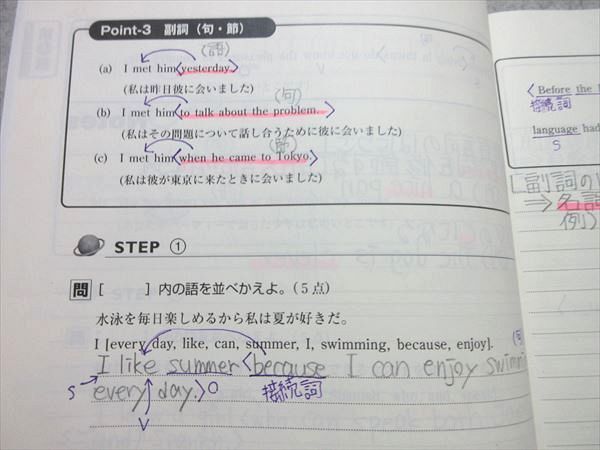 Point-3 副詞(句・節)
(語)
(a) I met him <yesterday.>
(私は昨日彼に会いました)
(句)
(b) I met him <to talk about the problem.>
(私はその問題について話し合うために彼に会いました)
(節)
(c) I met him <when he came to Tokyo.>
(私は彼が東京に来たときに会いました)
STEP ①
問 [ ] 内の語を並べかえよ。(5点)
水泳を毎日楽しめるから私は夏が好きだ。
I [every, day, like, can, summer, I, swimming, because, enjoy].
I like summer <because I can enjoy swimmi
S every day.> O 接続詞
V
<Before the l
接続詞
language had
S
[副詞の
⇒ 名詞
例)